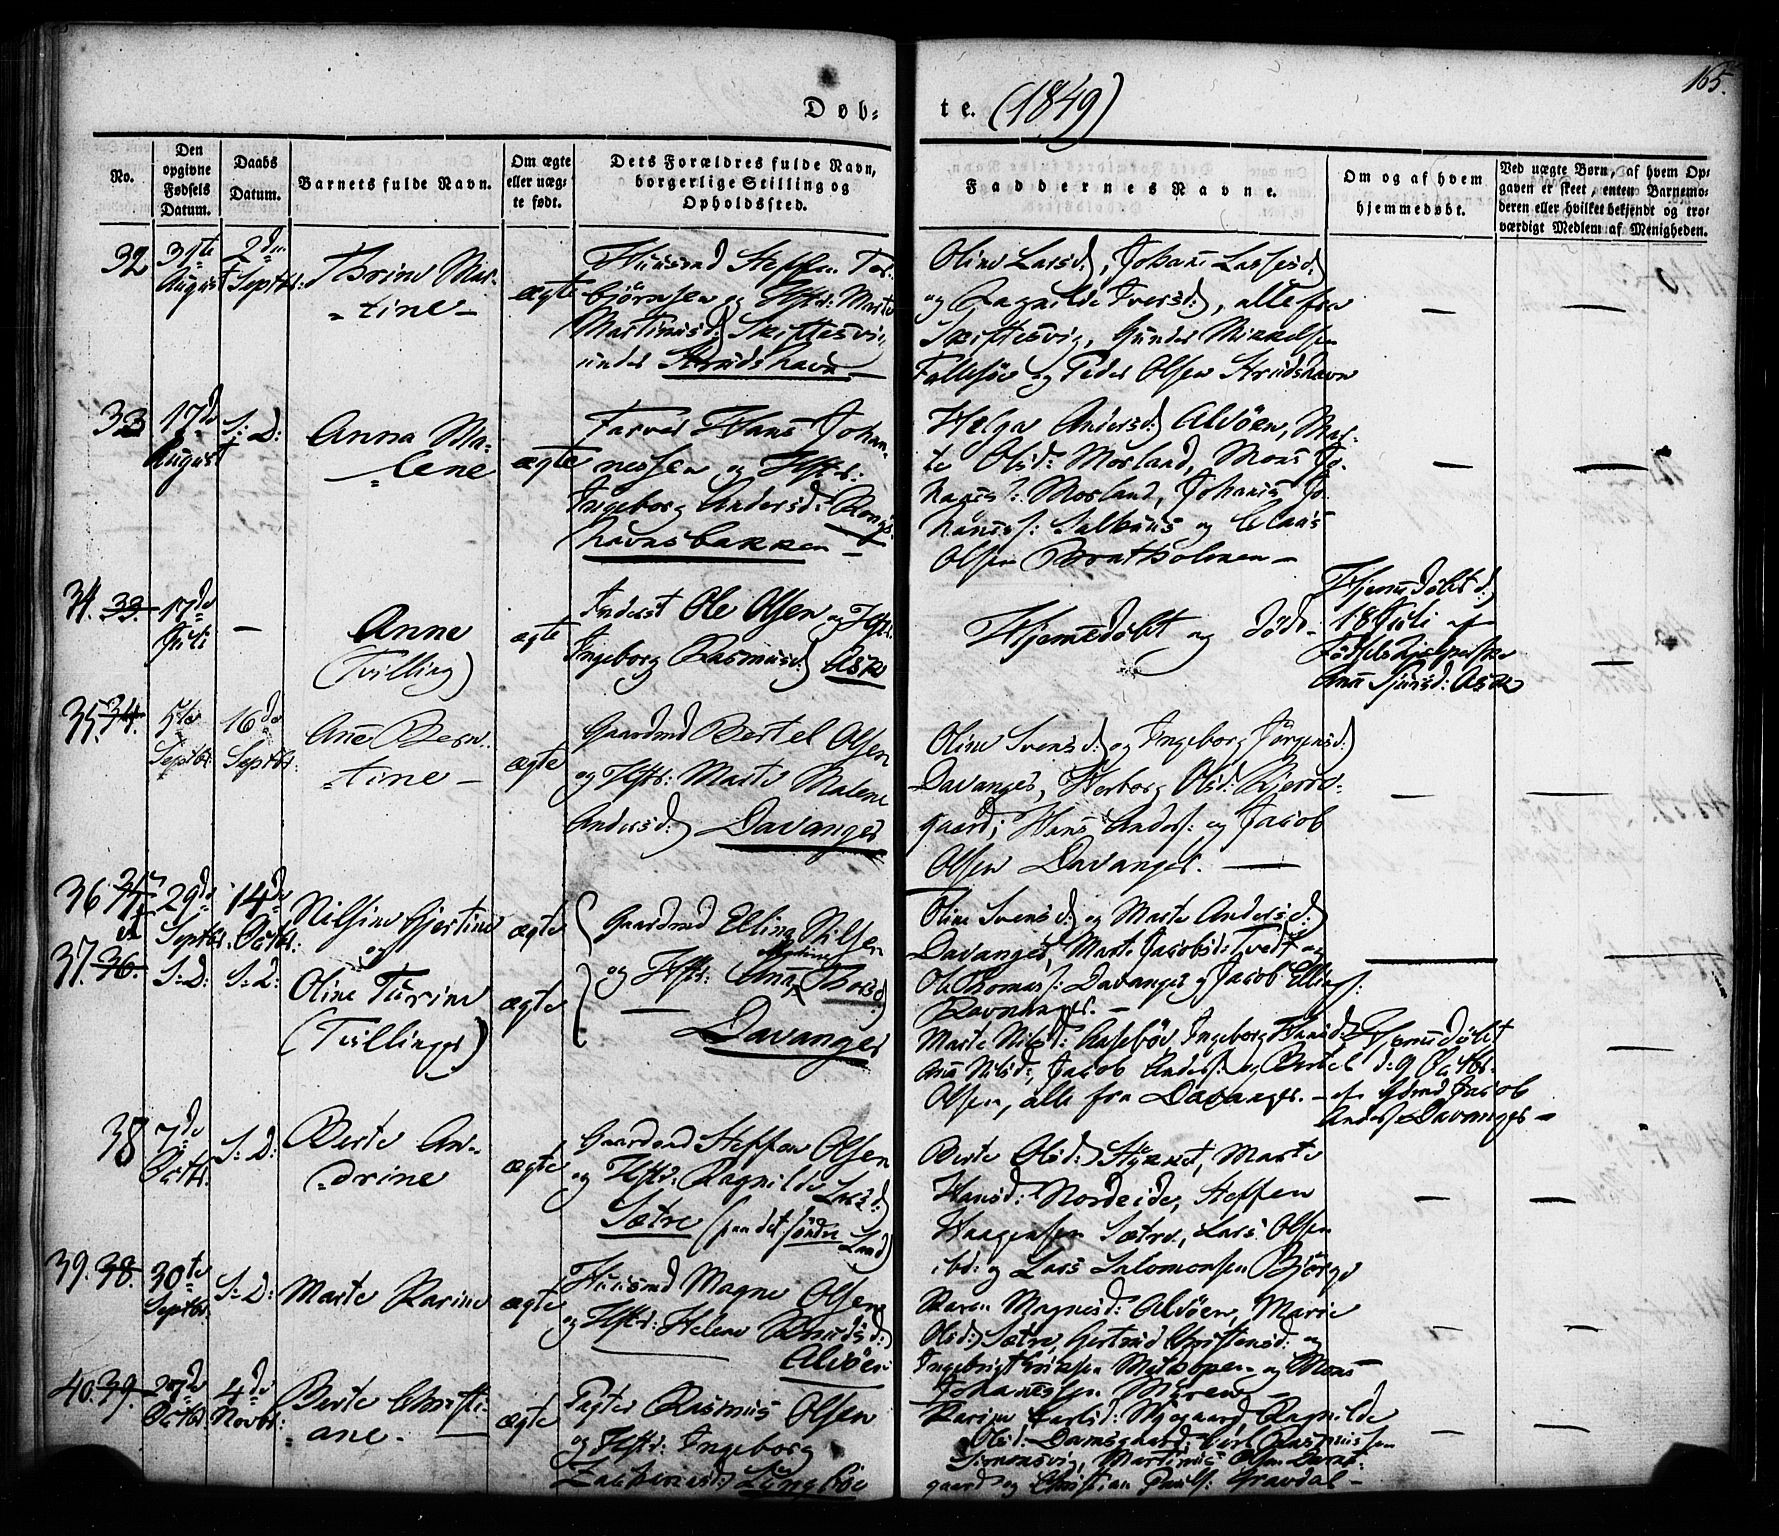 165.
Døb-
te. (1849)
No.
Den opgivne Fødsels Datum.
Daabs Datum.
Barnets fulde Navn.
Om ægte eller uægte født.
Dets Forældres fulde Navn, borgerlige Stilling og Opholdssted.
Faddernes Navne.
Om og af hvem hjemmedøbt.
Ved uægte Børn, af hvem Opgaven er skeet, enten Barnemoderen eller hvilket bekjendt og troværdigt Medlem af Menigheden.
32
31te August
2den Septbr:
Thrine Mar-
tine
ægte
Huusmd Steffen Tor-
bjørnsen og Hstr: Marte
Martinusd: Skiftesvig
under Strudshavn
Oline Larsd:, Johanne Lassesd:
og Ragnilde Iversd:, alle fra
Skiftesvig, Gunder Mikkelsen
Follesøe og Peder Olsen Strudshavn
33
17de August
S: D:
Anna Ma-
lene
ægte
Farver Hans Johan-
nessen og Hstr:
Ingeborg Andersd:
havnsbakken
Helga Andersd: Alvøen, Mar-
te Olsd: Morland, Mons Jo-
hannes: Morland, Johannes Jo-
haness: Salhuus og Claus
Olsen Bratholmen
34. 33.
17de Juli
Anne
(Tvilling)
ægte
Inderst Ole Olsen og Hstr:
Ingeborg Rasmusd: Ask
Hjemmedøbt og død.
Hjemmedøbt d:
18 Juli af
Anna Ask
35. 34.
5te Septbr.
16de Septbr.
Ane Bern-
tine
ægte
Gaardmd Bertel Olsen
og Hstr: Marte Malene
Andersd: Davanger
Oline Svensd: og Ingeborg Jørgensd:
Davanger, Herborg Olsd: Kjerre-
gaard, Hans Anders: og Jacob
Olsen Davanger.
36 35
et
37. 36.
29de Septbr:
S: D:
14de Octbr:
S: D:
Nilsine Gjertine
og
Oline Turine
(Tvillinger)
ægte
ægte
Gaardmd Elling Nilsen
og Hstr: Anna Thorsd:
Davanger
Oline Svensd: og Marte Andersd:
Davanger, Marte Jacobsd: Tvedt og
Ole Thomas: Davanger og Jacob Ellings:
Ravnanger.
Marte Nilsd: Aasebøe, Ingeborg Hansd:
Anna Nilsd:, Jacob Anders: og Bertel
Olsen, alle fra Davanger.
Hjemmedøbt
d: 9 Octbr.
af Gdmd Jacob
Anders: Davanger
38
7de Octbr.
S: D:
Berte An-
drine
ægte
Gaardmd Steffen Olsen
og Hstr: Ragnilde Larsd:
Sætre (paa det søndre Land)
Berte Olsd: Stykket, Marte
Hansd: Nordeide, Steffen
Haagensen Sætre, Lars Olsen
ibd: og Lars Salomonsen Bjørge
39. 38.
30te Septbr.
S: D:
Marte Karine
ægte
Huusmd Magne Olsen
og Hstr: Helene Knudsd:
Alvøen
Karen Magnesd: Alvøen, Marie
Olsd: Sætre, Gertrud Christensd: og
Ingebrigt Eriksen og Mons
Johannessen Myrene
40. 39.
Octbr.
4de Novbr:
Berte Christi-
ane
ægte
Pagter Rasmus Olsen
og Hstr: Ingeborg
Zachariasd: Lyngbøe
Karine Carlsd: Mygaard, Ragnilde
Olsd: Damsgaard, Carl Rasmussen
Simonsvig, Martinus Olsen Dams-
gaard og Christian Pauls: Gravdal